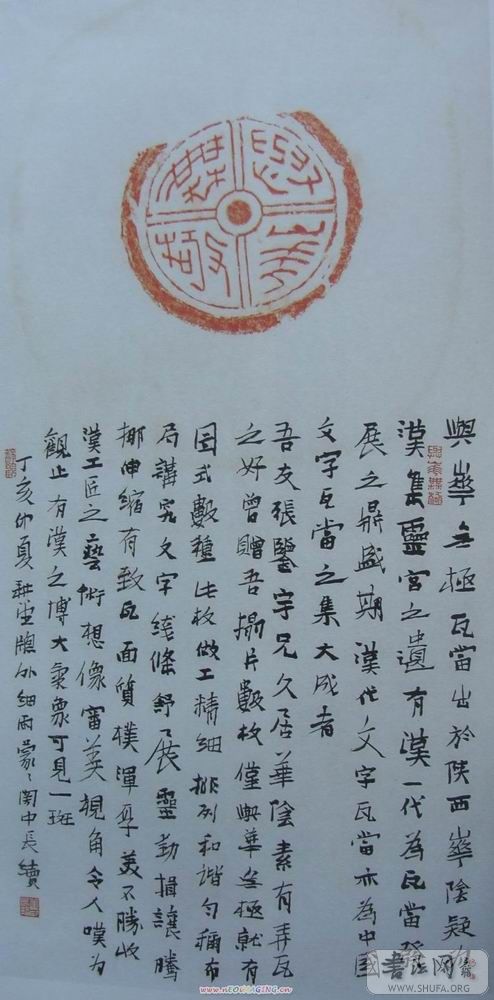 與華無極
與崋无極瓦當出於陝西崋陰疑
漢集靈宮之遺有漢一代為瓦當發
展之鼎盛期漢代文字瓦當亦為中國
文字瓦當之集大成者
吾友張鑒宇兄久居華陰素有弄瓦
之好曾贈吾搨片數枚僅與華无極就有
图式數種此枚做工精细排列和諧勻稱布
局講究文字线條舒展靈動揖讓騰
挪伸缩有致瓦面質樸渾厚美不勝收
漢工匠之藝術想像審美視角令人嘆為
觀止有漢之博大氣象可見一斑
丁亥仲夏耕堂牕外细雨蒙〻中長續
書法网
WWW.SHUFA.ORG
www.neoimaging.cn